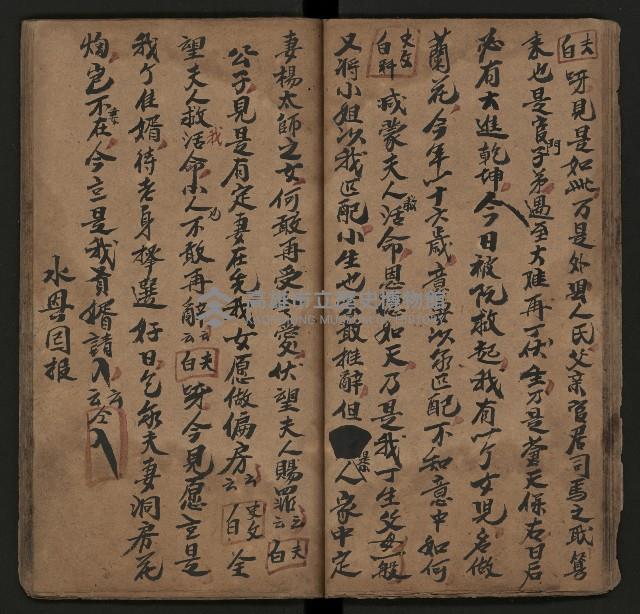 夫白 呀見是如此乃是外男人氏父親官居司馬之職算
來也是官門子弟遇至大难再丁伏生乃是蒼天保右日后
必有大進乾坤今日被阮救起我有一个女児名做
蘭花今年一十六歳意要以你匹配不知意中如何
史文白 斟感蒙夫人救活命恩德如天乃是我丁生父母一般
又將小姐以我匹配小生也不敢推辞但 人家中定
妻楊太師之女何敢再受 愛伏望夫人賜罪云云 夫白
公子見是有定妻在先我女愿做偏房云云 史文白 全
望夫人救活我命小人也不敢再辭云云 夫白 呀今見愿立是
我个佳婿待老身擇選好日乞你夫妻洞房花
燭豈不在今立是我貴婿請入云云 仝入
水母囘報
高雄市立歷史博物館
KAOHSIUNG MUSEUM OF HISTORY